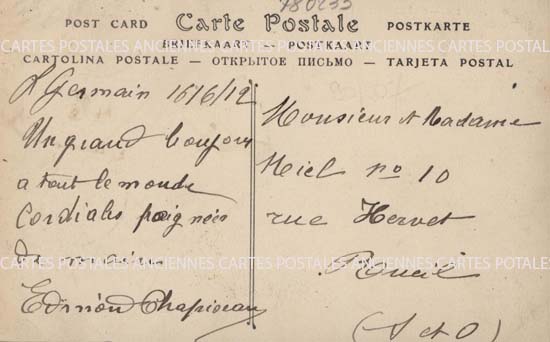 780233
POST CARD Carte Postale POSTKARTE
BRIEFKAART — POSTKAART
CARTES POSTALES ANCIENNES CARTES POSTALES ANCIENNES CARTES POSTALES
CARTOLINA POSTALE — ОТКРЫТОЕ ПИСЬМО — TARJETA POSTAL
St Germain 16/6/12
Un grand bonjour
a tout le monde
Cordiales poignées
de mains
Edmond
Monsieur et Madame
Miel no 10
rue Hervet
Rueil
(S et O)
CARTES POSTALES ANCIENNES CARTES POSTALES ANCIENNES CARTES POTALES